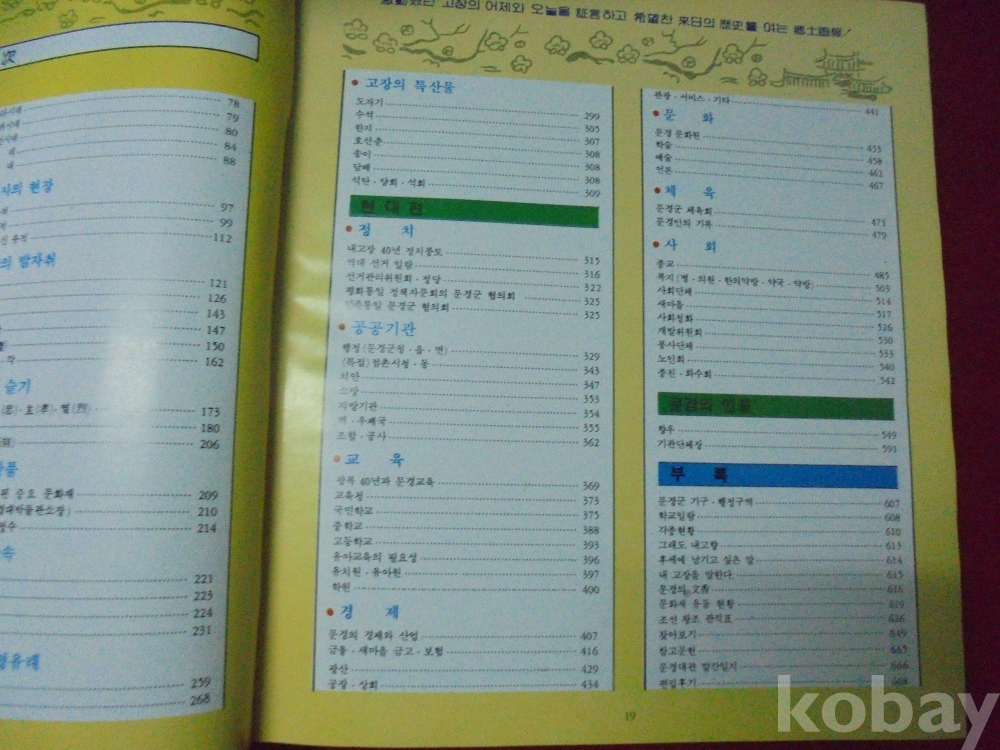 次
78
79
80
84
88
사의 현장
97
99
112
의 발자취
121
126
143
147
150
162
슬기
173
180
206
된 중요 문화재 209
210
214
속
221
223
224
231
259
268
고장의 어제와 오늘을 証言하고 希望찬 來日의 歷史를 여는 鄕土画報!
• 고장의 특산물
도자기 299
수석 305
한지 307
호산춘 308
송이 308
담배 308
석탄·당회·석회 309
현대편
• 정 치
내고장 40년 정치풍토 315
역대 선거 일람 316
선거관리위원회·정당 322
평화통일 정책자문회의 문경군 협의회 325
민족통일 문경군 협의회 325
• 공공기관
행정(문경군청·읍·면) 329
(특집)점촌시청·동 343
치안 347
소방 353
지방기관 354
역·우체국 355
조합·공사 362
• 교 육
광복 40년과 문경교육 369
교육청 373
국민학교 375
중학교 388
고등학교 393
유아교육의 필요성 396
유치원·유아원 397
학원 400
• 경 제
문경의 경제와 산업 407
금융·새마을 금고·보험 416
광산 429
공장·상회 434
관광·서비스·기타 441
• 문 화
문경 문화원 453
학술 458
예술 462
언론 467
• 체 육
문경군 체육회 473
문경인의 기록 479
• 사 회
종교 485
복지(병·의원·한의약방·약국·약방) 503
사회단체 514
새마을 517
사회정화 526
개발위원회 530
봉사단체 533
노인회 540
종친·화수회 542
문경의 인물
향우 549
기관단체장 591
부 록
문경군 기구·행정구역 607
학교일람 608
각종현황 610
그래도 내고향 613
후세에 남기고 싶은 말 614
내 고장을 말한다 615
문경의 文香 616
문화재 유동 현황 619
조선 왕조 관직표 626
찾아보기 649
참고문헌 665
문경대관 발간일지 666
편집후기 668
19
kobay